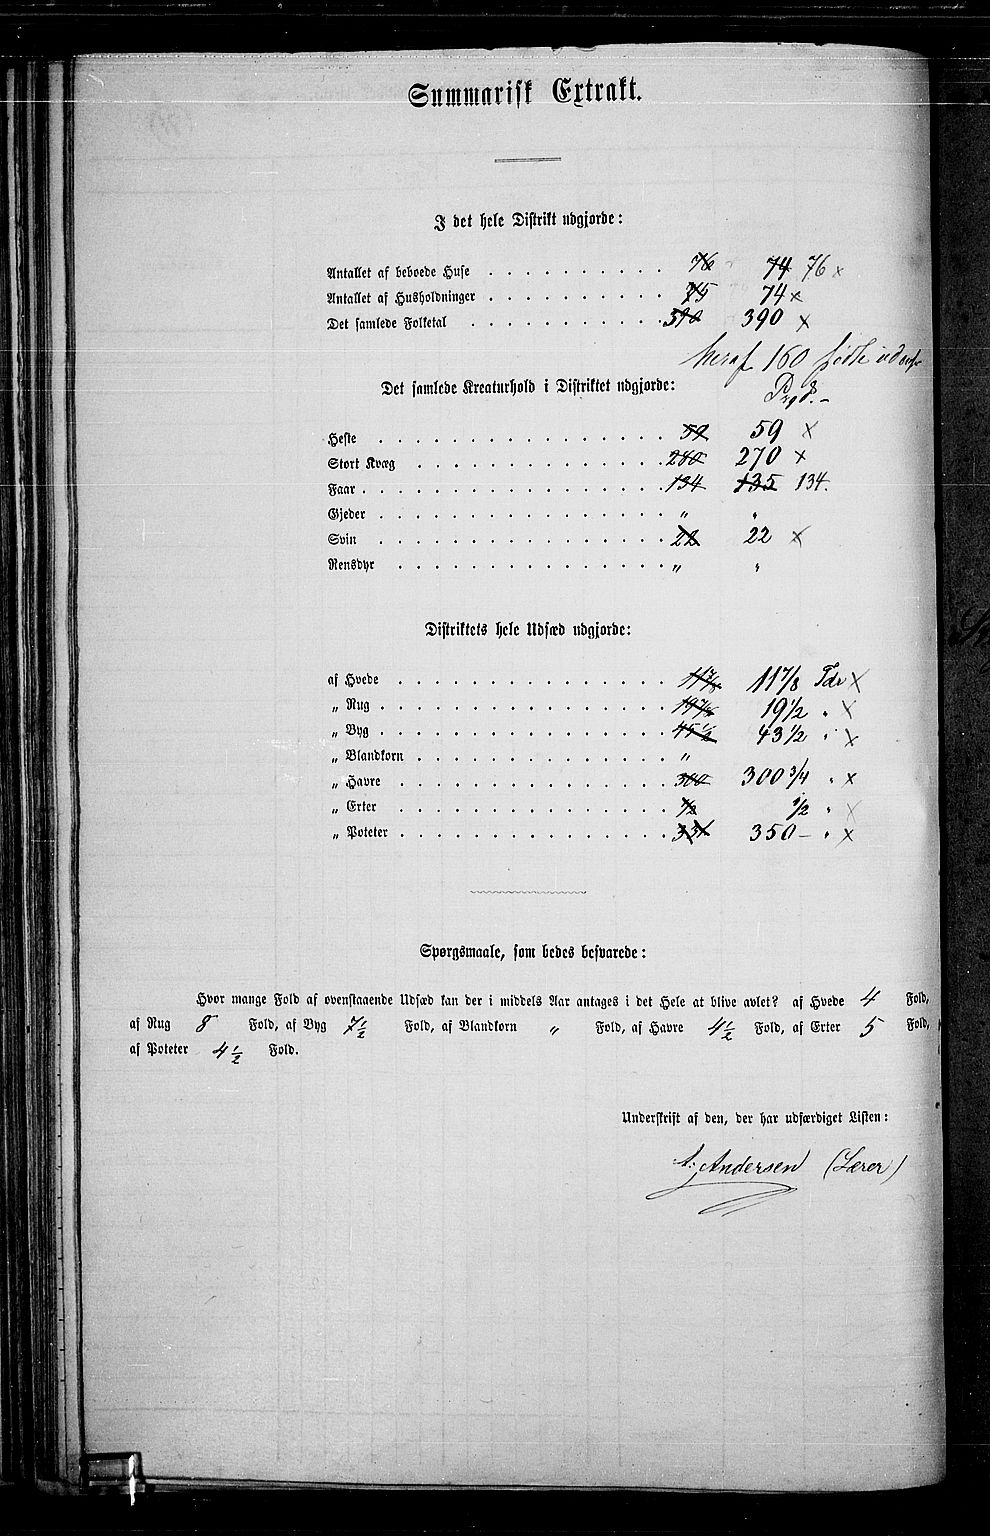 Summarisk Extrakt.
I det hele Distrikt udgjorde:
Antallet af beboede Huse 76 74 76 x
Antallet af Husholdninger 75 74 x
Det samlede Folketal 390 390 x
heraf 160 fødte
Det samlede Kreaturhold i Distriktet udgjorde:
Heste 59 59 x
Stort Kvæg 280 270 x
Faar 134 135 134.
Gjeder „ „
Svin 22 22 x
Rensdyr „ „
Distriktets hele Udsæd udgjorde:
af Hvede 11 7/8 Tdr x
„ Rug 19 1/2 „ x
„ Byg 45 1/2 43 1/2 „ x
„ Blandkorn „
„ Havre 300 300 3/4 „ x
„ Erter 1/2 1/2 „ x
„ Poteter 350 – „ x
Spørgsmaale, som bedes besvarede:
Hvor mange Fold af ovenstaaende Udsæd kan der i middels Aar antages i det Hele at blive avlet? af Hvede 4 Fold,
af Rug 8 Fold, af Byg 7 1/2 Fold, af Blandkorn „ Fold, af Havre 4 1/2 Fold, af Erter 5 Fold,
af Poteter 4 1/2 Fold.
Underskrift af den, der har udfærdiget Listen:
A. Andersen (Lærer)